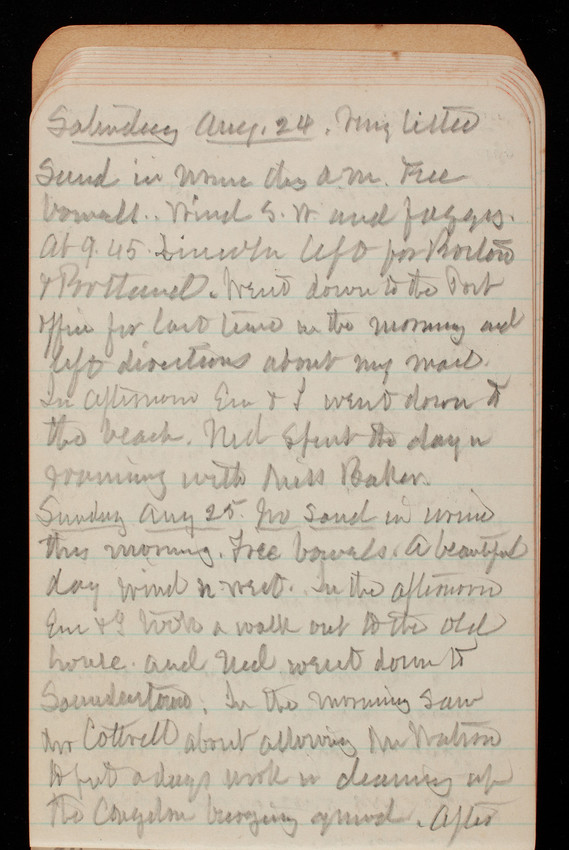 Saturday Aug. 24. Very little
sand in urine this a.m. Free
bowels. Wind S.W. and foggy.
At 9.45 Lincoln left for Boston
& Portland. Went down to the Post
office for last time in the morning and
left directions about my mail.
In afternoon Em & I went down to
the beach. Ned spent the day in
roaming with Miss Baker.
Sunday Aug 25. No sand in urine
this morning. Free bowels. A beautiful
day wind N. West. In the afternoon
Em & I took a walk out to the old
house. and Ned went down to
Saunderstown. In the morning saw
Mr Cottrell about allowing Mr Watson
to put a days work in cleaning up
the Congdon burying ground. After